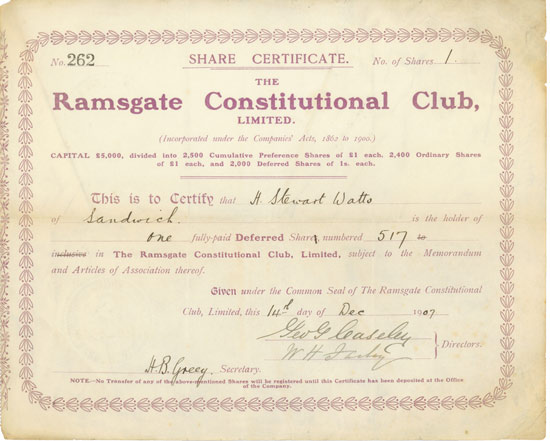 No. 262 SHARE CERTIFICATE. No. of Shares 1.
THE
Ramsgate Constitutional Club,
LIMITED.
(Incorporated under the Companies' Acts, 1862 to 1900.)
CAPITAL £5,000, divided into 2,500 Cumulative Preference Shares of £1 each. 2,400 Ordinary Shares
of £1 each, and 2,000 Deferred Shares of 1s. each.
This is to Certify that H Stewart Watts
of Sandwich. is the holder of
one fully-paid Deferred Share, numbered 517 to
inclusive in The Ramsgate Constitutional Club, Limited, subject to the Memorandum
and Articles of Association thereof.
Given under the Common Seal of The Ramsgate Constitutional
Club, Limited, this 14th day of Dec 1907
Geo G Caseley
W H
Directors.
H. B. Secretary.
NOTE.—No Transfer of any of the above-mentioned Shares will be registered until this Certificate has been deposited at the Office
of the Company.